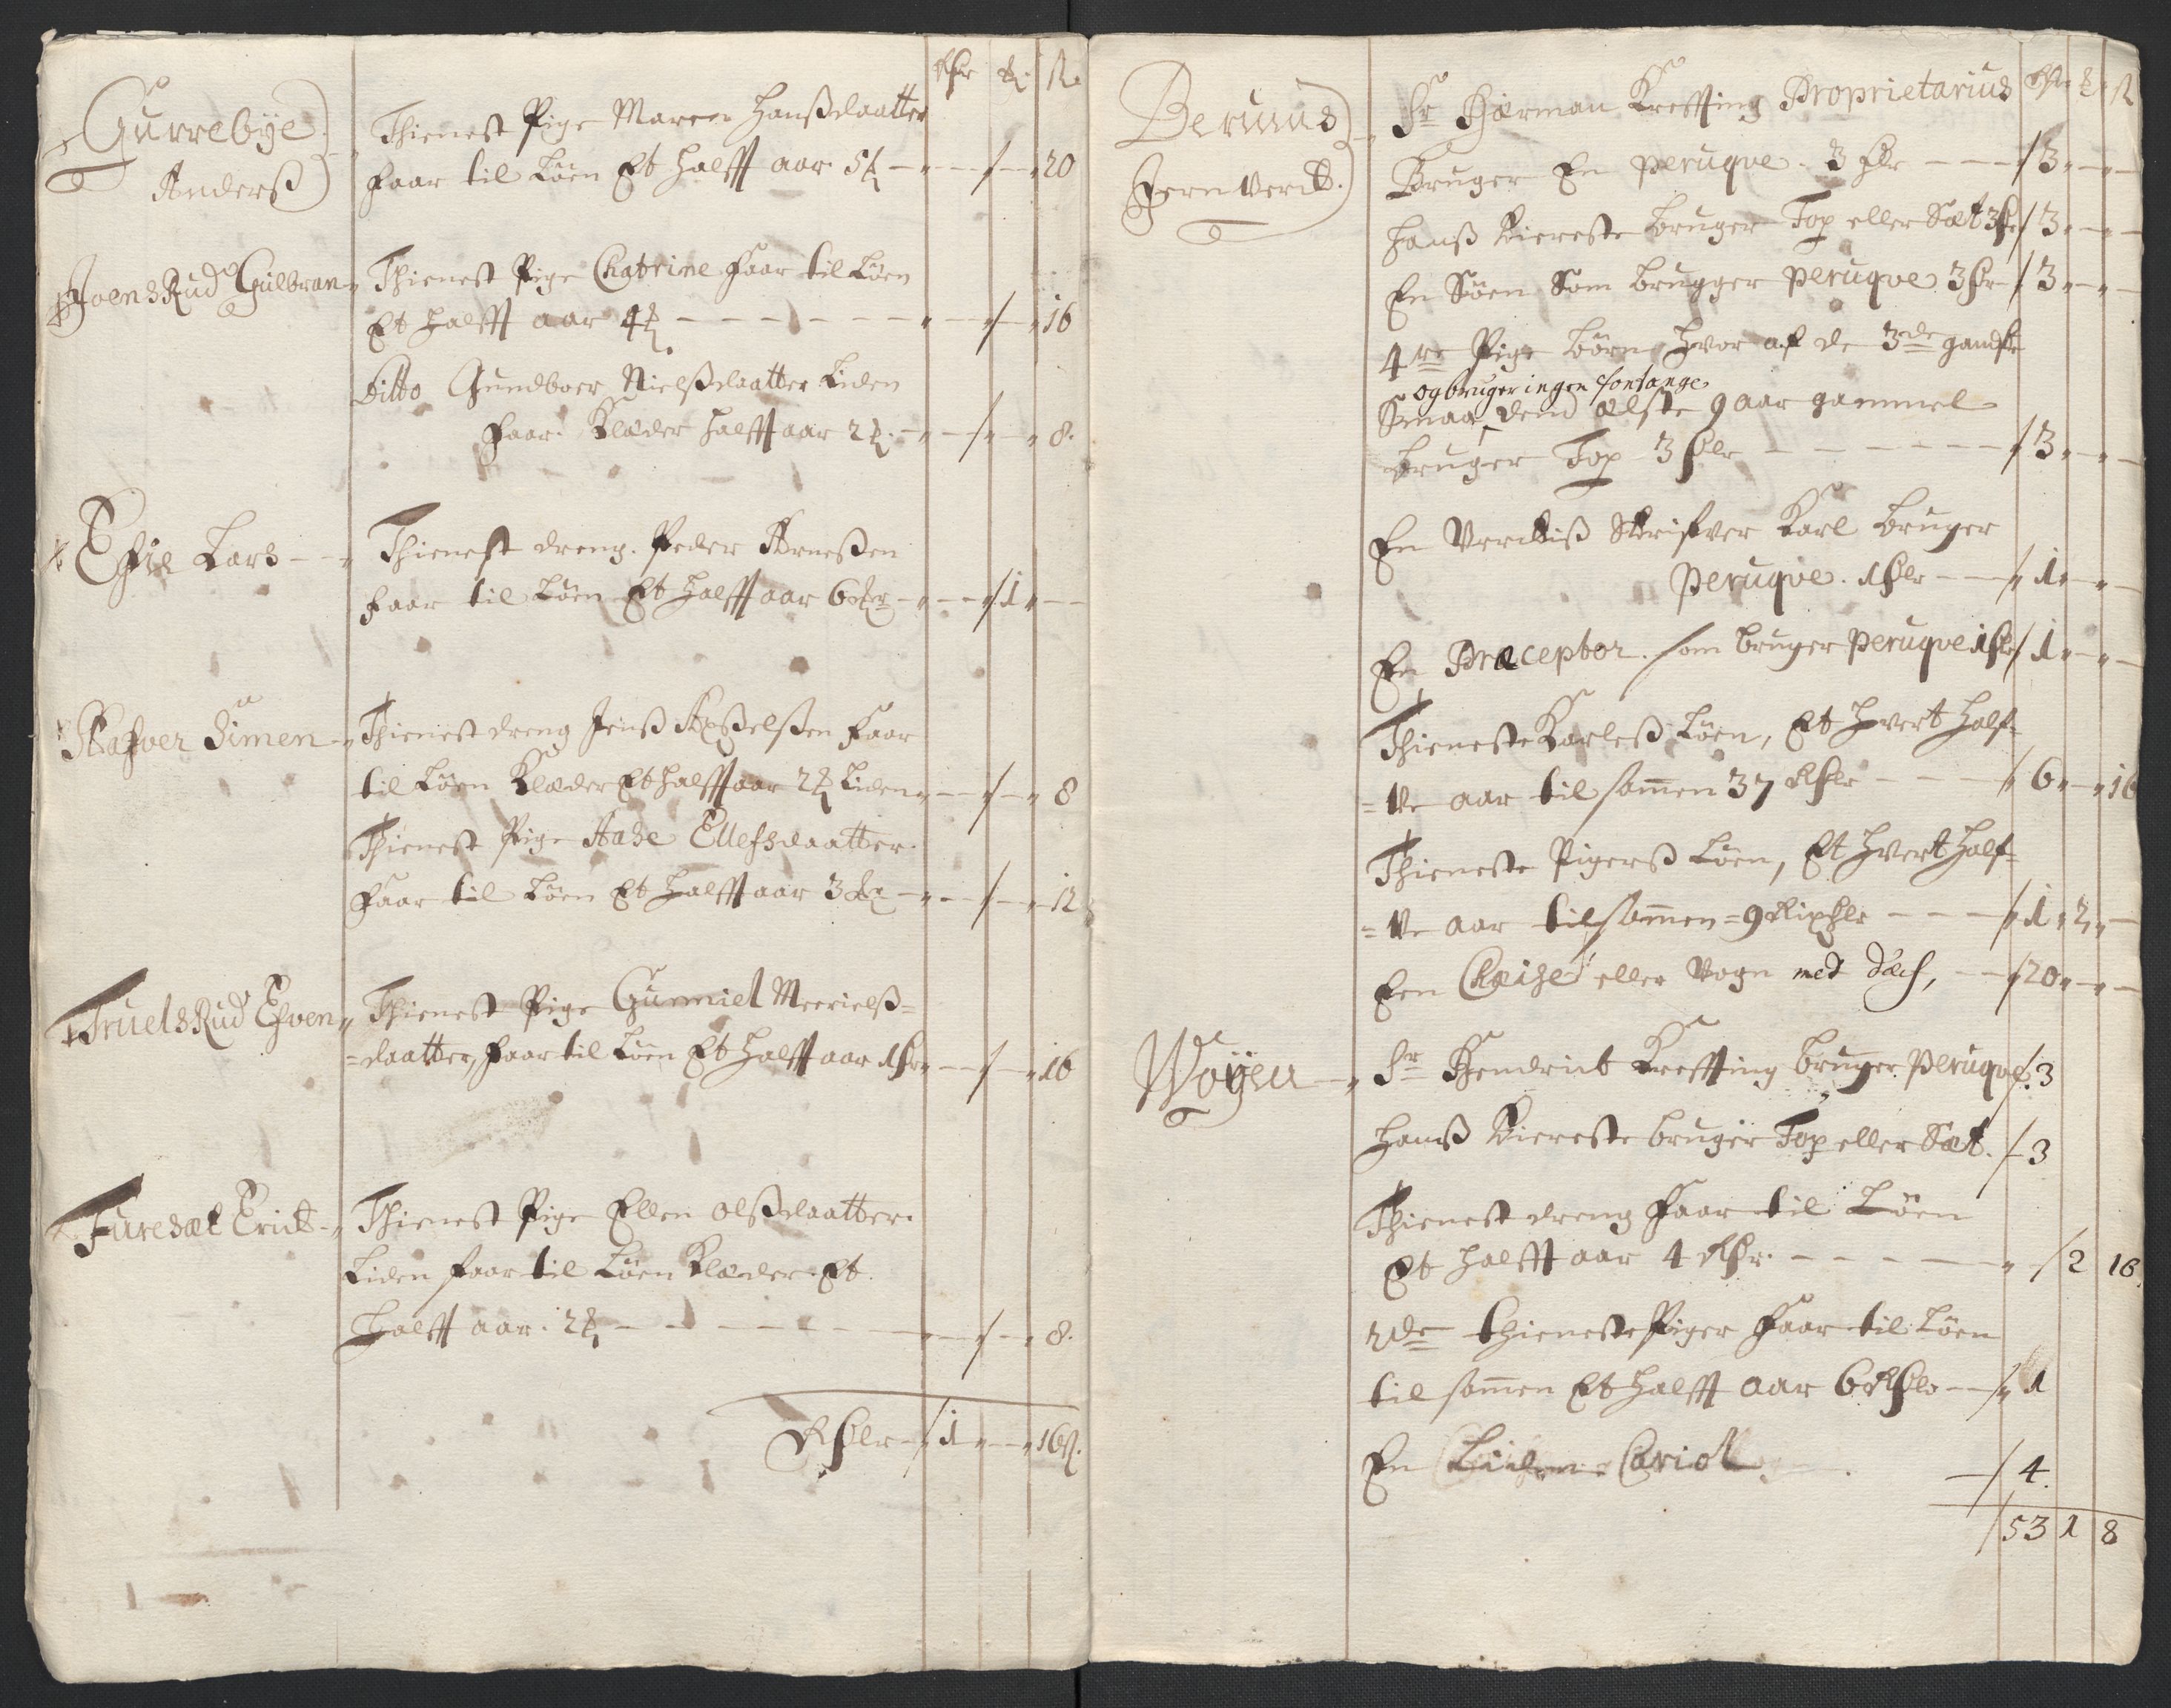 Rdr ort ß
Gurrebÿe
Anderß
Thienest Pige Maren Hanßdaatter
faar til Löen Et halfft aar 5 ort - - / - 20
JoensRud Gulbran
Thienest Pige Chatrine faar til Löen
Et halfft aar 4 ort - - - - - / - 16
Ditto Gundboer Nielßdaatter Liden
faar Klæder halfft aar 2 ort - - / - 8.
Lars -
Thienest dreng. Peder Arneßen
faar til Löen Et halfft aar 6 ort - - / 1 - -
Simen -
Thienest dreng Jenß Axßelßen faar
til Löen Klæder Et halfft aar 2 ort Liden - / - 8
Thienest Pige Aase Ellefsdaatter
faar til Löen Et halfft aar 3 ort - - / - 12
TruelsRud Efven
Thienest Pige Gunniel Meerielß=
=daatter, faar til Löen Et halfft aar 1 Rdr - / - 16
Furesæt Erick -
Thienest Pige Ellen Olßdaatter
Liden faar til Löen Klæder Et
halfft aar. 2 ort - - - - - / - 8.
Rdlr - / 1 - - 16 ß.
Rdr ort ß
Berums
Jern Verck.
Sr Herman Kreffting Proprietarius
Bruger En peruqve. 3 Rdr - - - / 3 - -
Hanß Kiereste bruger Top eller Sæt 3 Rdr / 3 - -
En Söen Som brugger peruqve 3 Rdr - / 3 - -
4re Pige börn hvor af de 3de gandske
og bruger ingen fontange
Smaa, dend ælste 9 aar gammel
bruger Top 3 Rdlr - - - - - / 3 - -
En Verckiß Skrifver Karl bruger
Peruqve. 1 Rdlr - - / 1 - -
En Præceptor. som bruger peruqve 1 Rdlr / 1 - -
Thieneste Karleß Löen, Et hvert half=
=ve aar til sammen 37 Rdlr - - - / 6 - 16
Thieneste Pigerß Löen, Et hvert half=
=ve aar tilsammen = 9 Rixdlr - - - / 1 2 -
Een Chaise eller Vogn med Dæch, - - / 20 - -
Woÿen -
Sr Hendrick Kreffting bruger peruqve / 3
Hanß Kiereste bruger Top eller Sæt. / 3
Thienest dreng faar til Löen
Et halfft aar 4 Rdr. - - - - - / 2 16
2de thieneste Piger faar til Löen
til sammen Et halfft aar 6 Rdlr - - / 1
En Cariol - / 4.
/ 53 1 8